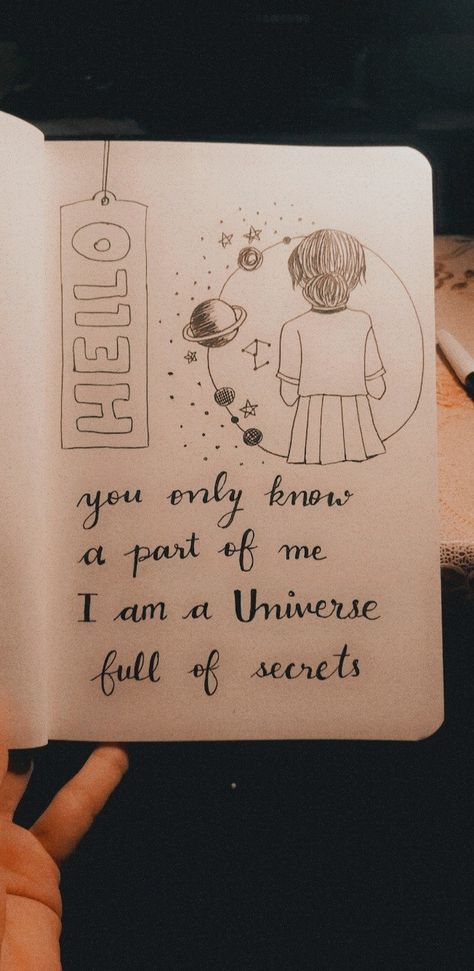 HELLO
you only know
a part of me
I am a Universe
full of secrets